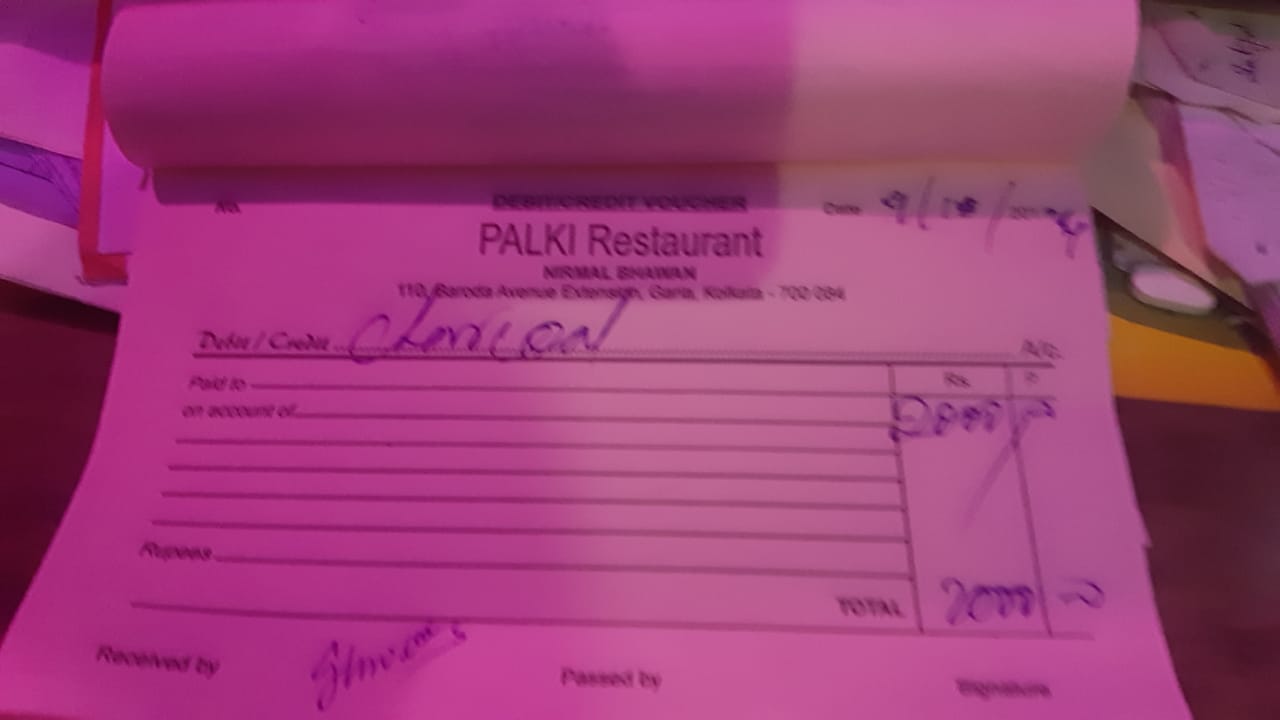 No. DEBIT/CREDIT VOUCHER Date 9/10/201
PALKI Restaurant
NIRMAL BHAWAN
110, Baroda Avenue Extension, Garia, Kolkata - 700 084
Debit / Credit Charcoal A/c.
Paid to Rs. P.
on account of 2000
Rupees
TOTAL 2000
Received by Passed by Signature